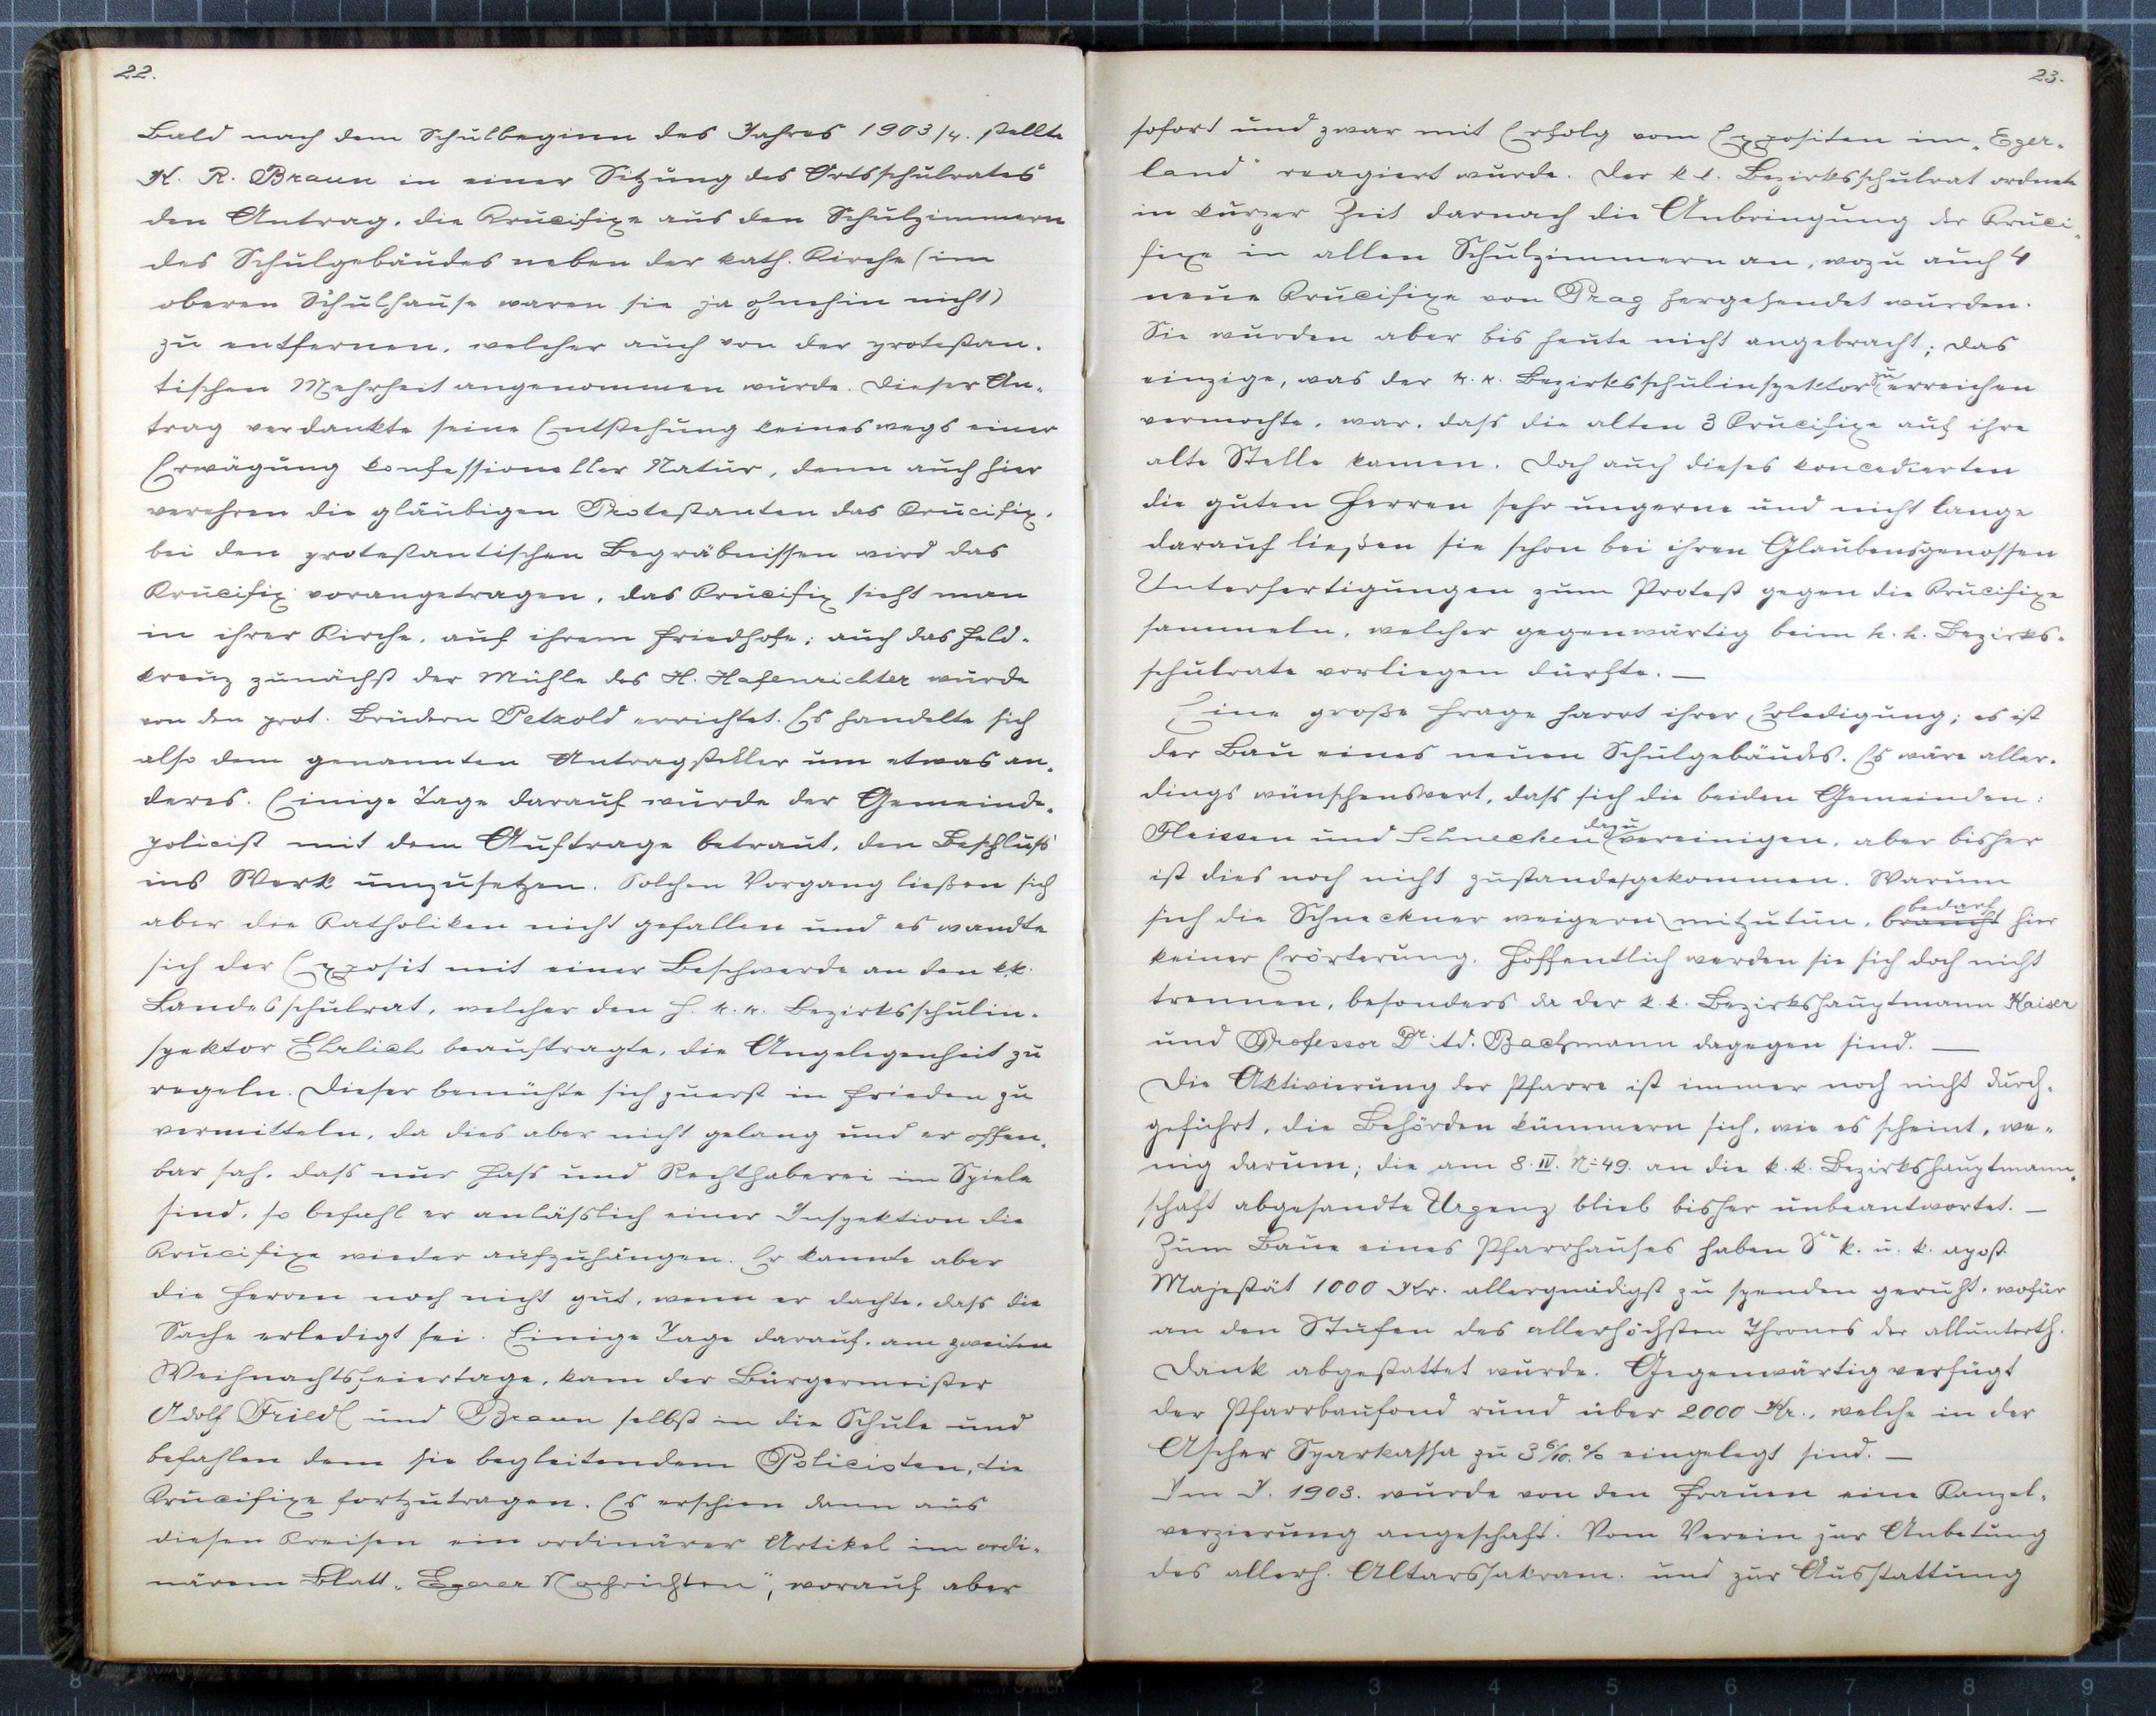 22.
Bald nach dem Schulbeginn des Jahres 1903/4. stellte
K. R. Braun in einer Sitzung des Ortsschulrates
den Antrag, die Krucifixe aus den Schulzimmern
des Schulgebäudes neben der kath. Kirche (im
oberen Schulhause waren sie ja ohnehin nicht)
zu entfernen, welcher auch von der protestan-
tischen Mehrheit angenommen wurde. Dieser An-
trag verdankte seine Entstehung keineswegs einer
Erwägung konfessioneller Natur, denn auch hier
verehren die gläubigen Protestanten das Krucifix,
bei den protestantischen Begräbnissen wird das
Krucifix vorangetragen, das Krucifix sieht man
in ihrer Kirche, auf ihrem Friedhofe; auch das Feld-
kreuz zunächst der Mühle des H. Hafenrichter wurde
von den prot. Brüdern Petzold errichtet. Es handelte sich
also dem genannten Antragsteller um etwas an-
deres. Einige Tage darauf wurde der Gemeinde-
policist mit dem Auftrage betraut, den Beschluß
ins Werk umzusetzen. Solchen Vorgang ließen sich
aber die Katholiken nicht gefallen und es wandte
sich der Exposit mit einer Beschwerde an den k.k.
Landesschulrat, welcher den H. k. k. Bezirksschulin-
spektor Ehrlich beauftragte, die Angelegenheit zu
regeln. Dieser bemühte sich zuerst in Frieden zu
vermitteln, da dies aber nicht gelang und er offen-
bar sah, dass nur Hass und Rechthaberei im Spiele
sind, so befahl er anlässlich einer Inspektion die
Krucifixe wieder aufzuhängen. Er kannte aber
die Herren noch nicht gut, wenn er dachte, dass die
Sache erledigt sei. Einige Tage darauf, am zweiten
Weihnachtsfeiertage, kam der Bürgermeister
Adolf Friedl und Braun selbst in die Schule und
befahlen dem sie begleitendem Policisten, die
Krucifixe fortzutragen. Es erschien dann aus
diesen Kreisen ein ordinärer Artikel im ordi-
nären Blatt „Egerer Nachrichten", worauf aber
23.
sofort und zwar mit Erfolg vom Expositen im „Eger-
land" reagiert wurde. Der k.k. Bezirksschulrat ordnete
in kurzer Zeit darnach die Anbringung der Kruci-
fixe in allen Schulzimmern an, wozu auch 4
neue Krucifixe von Prag hergesendet wurden.
Sie wurden aber bis heute nicht angebracht; das
einzige, was der k. k. Bezirksschulinspektor zu erreichen
vermochte, war, dass die alten 3 Krucifixe auf ihre
alte Stelle kamen. Doch auch dieses koncedierten
die guten Herren sehr ungerne und nicht lange
darauf ließen sie schon bei ihren Glaubensgenossen
Unterfertigungen zum Protest gegen die Krucifixe
sammeln, welcher gegenwärtig beim k. k. Bezirks-
schulrate vorliegen dürfte. —
Eine große Frage harrt ihrer Erledigung; es ist
der Bau eines neuen Schulgebäudes. Es wäre aller-
dings wünschenswert, dass sich die beiden Gemeinden:
Fleissen und Schnecken dazu vereinigen, aber bisher
ist dies noch nicht zustandegekommen. Warum
sich die Schneckner weigern mitzutun, braucht bedarf hier
keiner Erörterung. Hoffentlich werden sie sich doch nicht
trennen, besonders da der k. k. Bezirkshauptmann Kaiser
und Professor Dr. Bachmann dagegen sind. —
Die Aktivierung der Pfarre ist immer noch nicht durch-
geführt, die Behörden kümmern sich, wie es scheint, we-
nig darum; die am 8. IV. N= 49. an die k. k. Bezirkshauptmann-
schaft abgesandte Urgenz blieb bisher unbeantwortet. —
Zum Baue eines Pfarrhauses haben Se k. u. k. apost.
Majestät 1000 Kr. allergnädigst zu spenden geruht, wofür
an den Stufen des allerhöchsten Thrones der allunterth.
Dank abgestattet wurde. Gegenwärtig verfügt
der Pfarrbaufond rund über 2000 Kr., welche in der
Ascher Sparkassa zu 3 6/10. % eingelegt sind. —
Im J. 1903. wurde von den Frauen eine Kanzel-
verzierung angeschaft. Vom Verein zur Anbetung
des allerh. Altarssakram. und zur Ausstattung
8
1 2 3 4 5 6 7 8 9